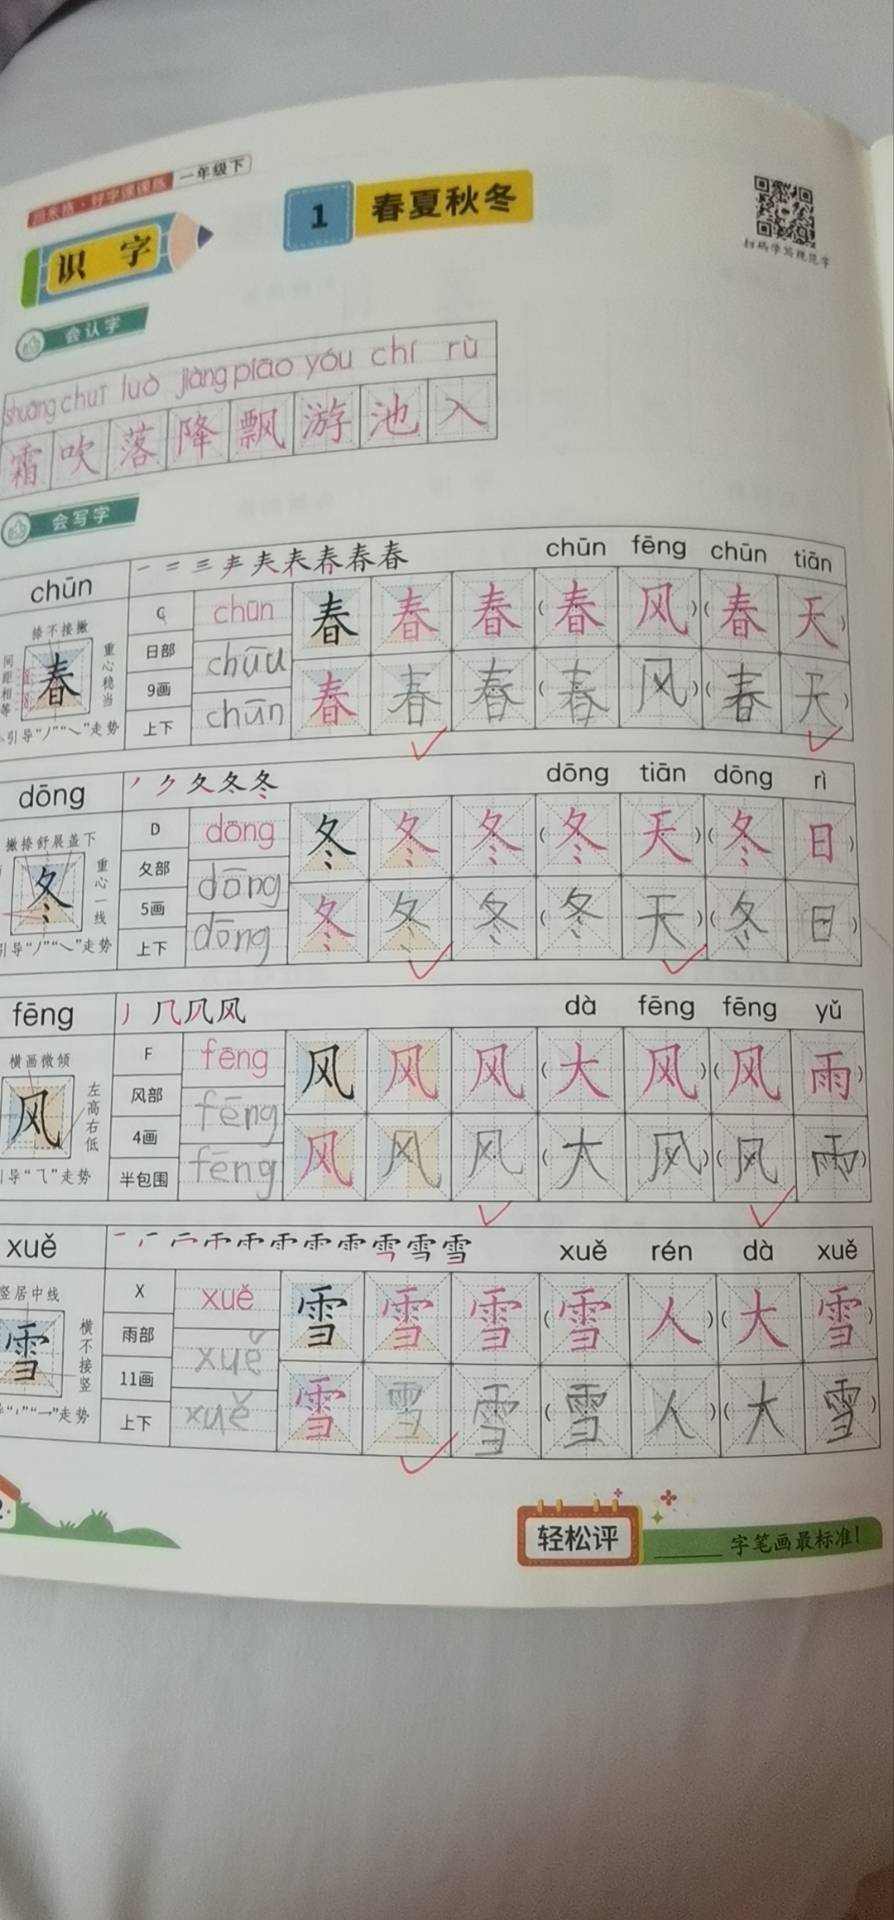 田米格·好字课课练 一年级下
识 字
1 春夏秋冬
扫码学写规范字
会认字
shuāng chuī luò jiàng piāo yóu chí rù
霜 吹 落 降 飘 游 池 入
会写字
chūn
一 二 三 声 夫 表 春 春 春
chūn fēng chūn tiān
捺不接撇
间距相等
重心稳当
春
引导“丿”“㇏”走势
C
日部
9画
上下
chūn
chūu
chūn
春 春 春 (春 风)(春 天)
春 春 春 (春 风)(春 天)
dōng
丿 ク 夂 冬 冬
dōng tiān dōng rì
撇捺舒展盖下
重心一线
冬
引导“丿”“㇏”走势
D
夂部
5画
上下
dōng
dōng
dōng
冬 冬 冬 (冬 天)(冬 日)
冬 冬 冬 (冬 天)(冬 日)
fēng
丿 几 凡 风
dà fēng fēng yǔ
横画微倾
左高右低
风
引导“⺄”走势
F
风部
4画
半包围
fēng
fēng
fēng
风 风 风 (大 风)(风 雨)
风 风 风 (大 风)(风 雨)
xuě
xuě rén dà xuě
竖居中线
横不接竖
雪
走势
X
雨部
11画
上下
xuě
xuě
xuě
雪 雪 雪 (雪 人)(大 雪)
雪 雪 雪 (雪 人)(大 雪)
2
轻松评
______字笔画最标准!